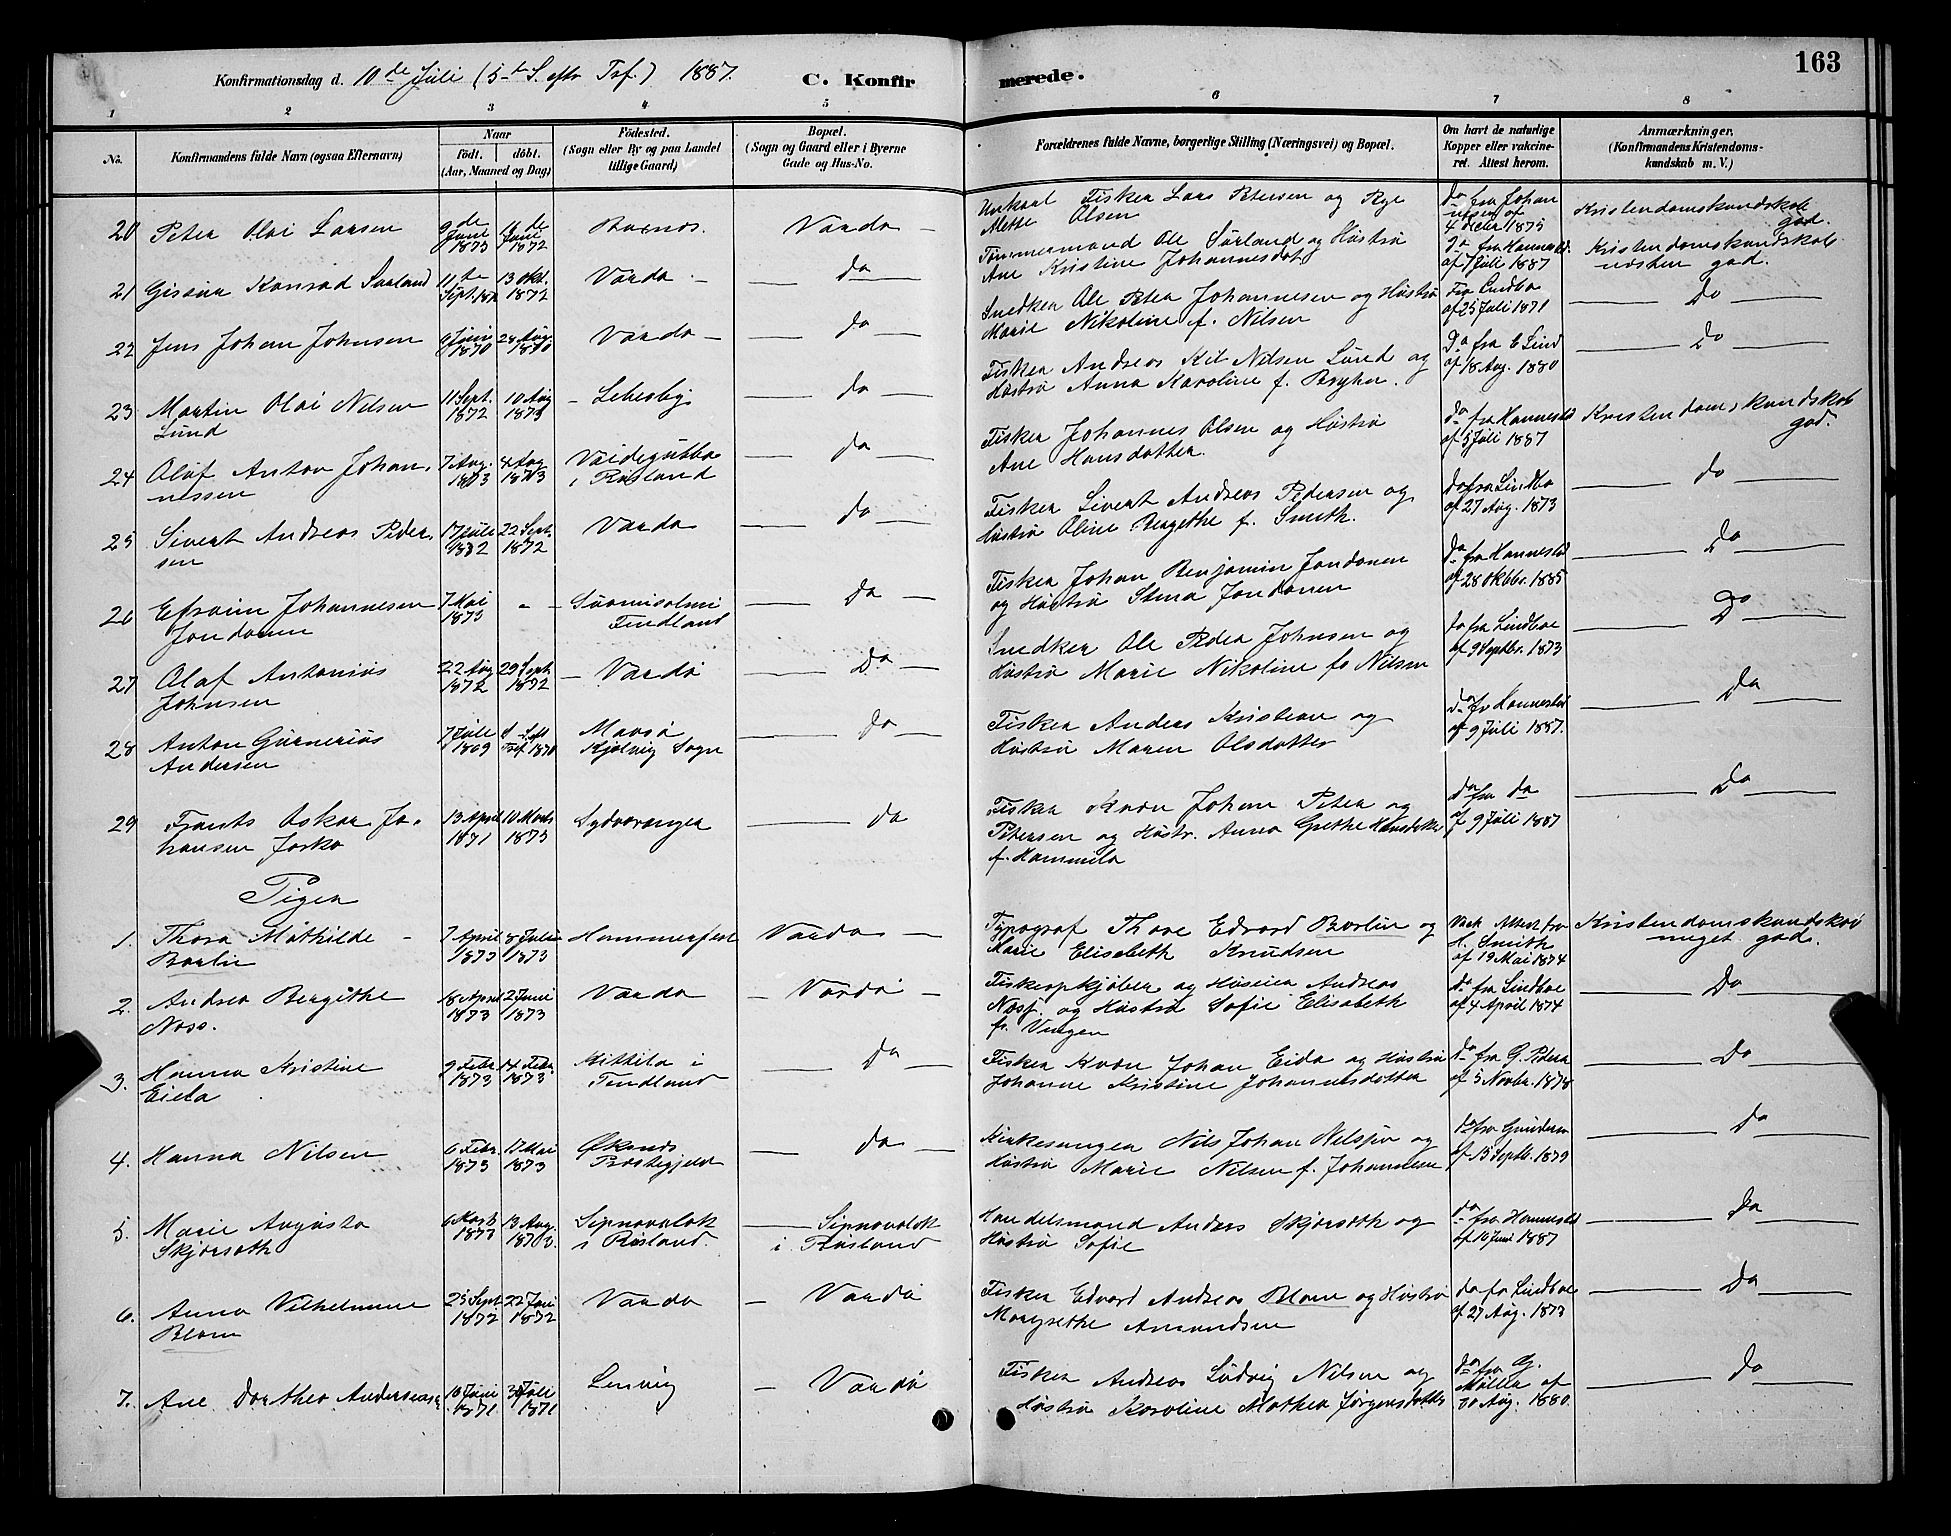 163
Konfirmationsdag d. 10de Juli (5te S. eftr Tref.) 1887. C. Konfirmerede.
1 2 3 4 5 6 7 8
No. Konfirmandens fulde Navn (ogsaa Efternavn)
Naar
födt. döbt.
(Aar, Maaned og Dag)
Födested.
(Sogn eller By og paa Landet
tillige Gaard)
Bopæl.
(Sogn og Gaard eller i Byerne
Gade og Hus-No.
Forældrenes fulde Navne, borgerlige Stilling (Næringsvei) og Bopæl.
Om havt de naturlige
Kopper eller vakcine-
ret. Attest herom.
Anmærkninger.
(Konfirmandens Kristendoms-
kundskab m. V.)
20 Peter Olai Larsen 9de Juni 1873 Vardø Fisker Lars Petersen og
Mette Olsen do fra Johan 1875 Kristendomskundskab god.
21 Konrad Sørland 11te Sept. 13 Okt. 1872 Vardø Do Tømmermand Ole Sørland og Hustru
Ane Kristine Johannesdot. do fra Hannestd. af 7 Juli 1887 Kristendomskundskab næsten god.
22 Jens Johan Johnsen 9 Juni 1870 28 Aug. 1870 Vardø Do Snedker Ole Peter Johannesen og Hustru
Marie Nikoline f. Nilsen Fra Lindbo af 25 Juli 1871 Do
23 Martin Olai Nilsen
Lund 11 Sept. 1872 10 Aug 1873 Lebesby Do Fisker Andreas Nilsen Lund og
Hustru Anna Karoline f. do fra E Lind af 18 Aug. 1880 Do
24 Olaf Anton Johan-
nessen 7 Aug. 1873 Vaidegubba
i Rusland Do Fisker Johannes Olsen og Hustru
Ane Hansdatter do fra Hannestd af 5 Juli 1887 Kristendomskundskab god.
25 Sivert Andreas Peder-
sen 17 Juli 1872 22 Sept. 1872 Vardø Do Fisker Sivert Andreas Pedersen og
Hustru Oline f. Smith. do fra Lindbo af 27 Aug. 1873 do
26 Efraim Johannesen
7 Mai 1873 Suomisalmi
Findland Do Fisker Johan Benjamin
og Hustru do fra Hannestd af 28 Oktbr. 1885 Do
27 Olaf Antonius
Johnsen 22 Aug 1872 29 Sept. 1872 Vardø Do Snedker Ole Peder Johnsen og
Hustru Marie Nikoline f. Nilsen do fra Lindboe af 9 Septbr. 1873 Do
28 Anton Gunerius
Andersen 7 Juli 1869 Tref. 1870 Maasø
Kjelvig Sogn Do Fisker Anders Kristian og
Hustru Maren Olsdatter do fr Hannestd af 9 Juli 1887. Do
29 Frants Oskar Jo-
hansen 13 April 1871 10 Marts 1873 Sydvaranger Do Fisker Kvæn Johan Peter
Petersen og Hustr. Anna Grethe
f. Hammila do fra do af 9 Juli 1887 Do
Piger
1. Thora Mathilde
Borlie 7 April 1873 8 Juli 1873 Hammerfest Vardø Typograf Thore Edvard Borlie og
Marie Elisabeth Knudsen Vac Attest fra H. Smith af 19 Mai 1874 Kristendomskundskab meget god.
2. Andrea Bergithe
Noss. 18 April 1873 2 Juni 1873 Vardø Vardø Fiskeopkjøber og Huseier Andreas
og Hustru Sofie Elisabeth
do fra Lindboe af 4 April 1874 Do
3. Hanna Kristine
Eida 9 Febr. 1873 14 Febr. 1873 Kittila i
Findland Do Fisker Kvæn Johan Eida og Hustru
Johanne Kristine Johannesdatter do fra G. Peders af 5 Novbr. 1878 Do
4. Hanna Nilsen 6 Febr. 1873 17 Mai 1873 Øksnes
Præstegjeld Do Kirkesanger Nils Johan Nilssen og
Hustru Marie Nilsen f. Johannesen do fra Gundersen af 15 Septb. 1879 Do
5. Marie Augusta
Skjørseth 6 Marts 1873 13 Aug. Sipnavolok
i Rusland. Sipnavolok
i Rusland Handelsmand Anders Skjørseth og
Hustru Sofie do fra Hannestd af 10 Juni 1887 Do
6. Anna Vilhelmine
Blom 25 Sept 1872 1872 Vardø Vardø Fisker Edvard Andreas Blom og Hustru
Margrethe Amundsen do fr Lindboe af 27 Aug. 1873 Do
7. Ane Dorthea Andersen 10 Juni 1871 30 Juli 1871 Lenvig Vardø Fisker Andreas Ludvig Nilsen og
Hustru Karoline Mathea Jørgensdatter do fra G. Müller af 30 Aug. 1880. Do